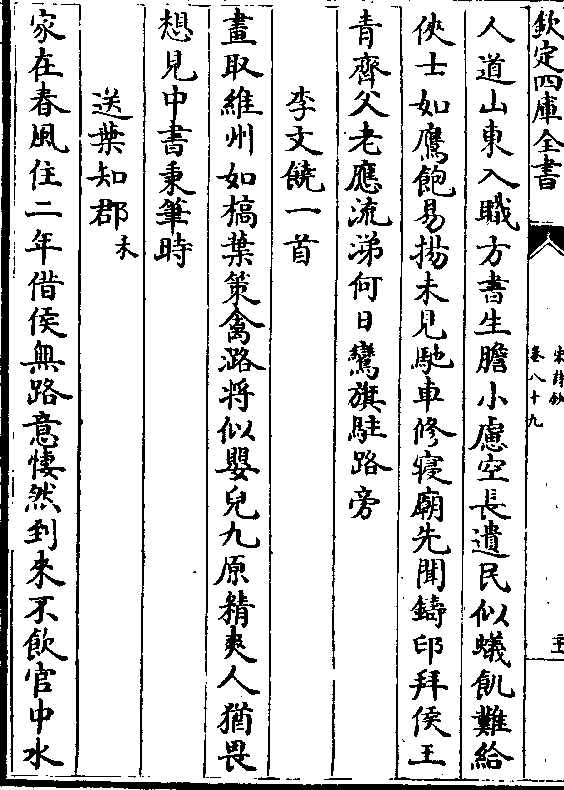 欽定四庫全書
宋詩鈔
卷八十九
人道山東入職方書生膽小慮空長遺民似蟻飢難給
俠士如鷹飽易揚未見馳車修寢廟先聞鑄印拜侯王
青齊父老應流涕何日鸞旗駐路旁
李文饒一首
畫取維州如槁葉策禽潞將似嬰兒九原精爽人猶畏
想見中書秉筆時
送葉知郡禾
家在春風住二年借侯無路意悽然到來不飲官中水